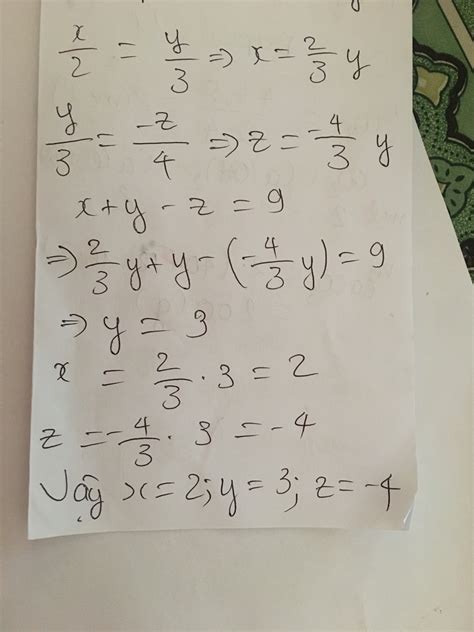 x/2 = y/3 ⇒ x = 2/3 y
y/3 = -z/4 ⇒ z = -4/3 y
x + y - z = 9
⇒ 2/3 y + y - (-4/3 y) = 9
⇒ y = 3
x = 2/3 . 3 = 2
z = -4/3 . 3 = -4
Vậy x = 2; y = 3; z = -4